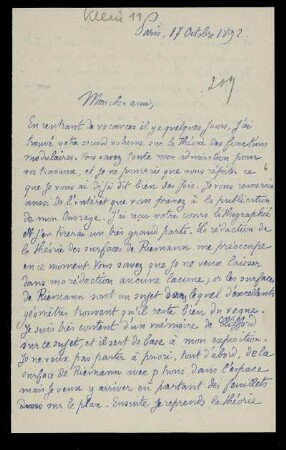 Klein 11 P
Paris, 17 Octobre 1892
209
Mon cher ami,
En rentrant de vacances il y a quelques jours, j'ai
trouvé votre second volume sur la théorie des fonctions
modulaires. Vous savez toute mon admiration pour
vos travaux, et je ne pourrai que vous répéter ce
que je vous ai déjà dit bien des fois. Je vous remercie
aussi de l'intérêt que vous prenez à la publication
de mon Ouvrage. J'ai reçu votre cours lithographié
et j'en tirerai un très grand parti. La rédaction de
la théorie des surfaces de Riemann me préoccupe
en ce moment. Vous savez que je ne veux laisser
dans ma rédaction aucune lacune, or les surfaces
de Riemann sont un sujet dans lequel d'excellents
géomètres trouvent qu'il reste bien du vague.
Je suis très content d'un mémoire de Clifford
sur ce sujet, et il sert de base à mon exposition.
Je ne veux pas partir a priori, tout d'abord, de la
surface de Riemann avec p trous dans l'espace
mais je veux y arriver en partant des feuillets
sur le plan. Ensuite je reprends la théorie